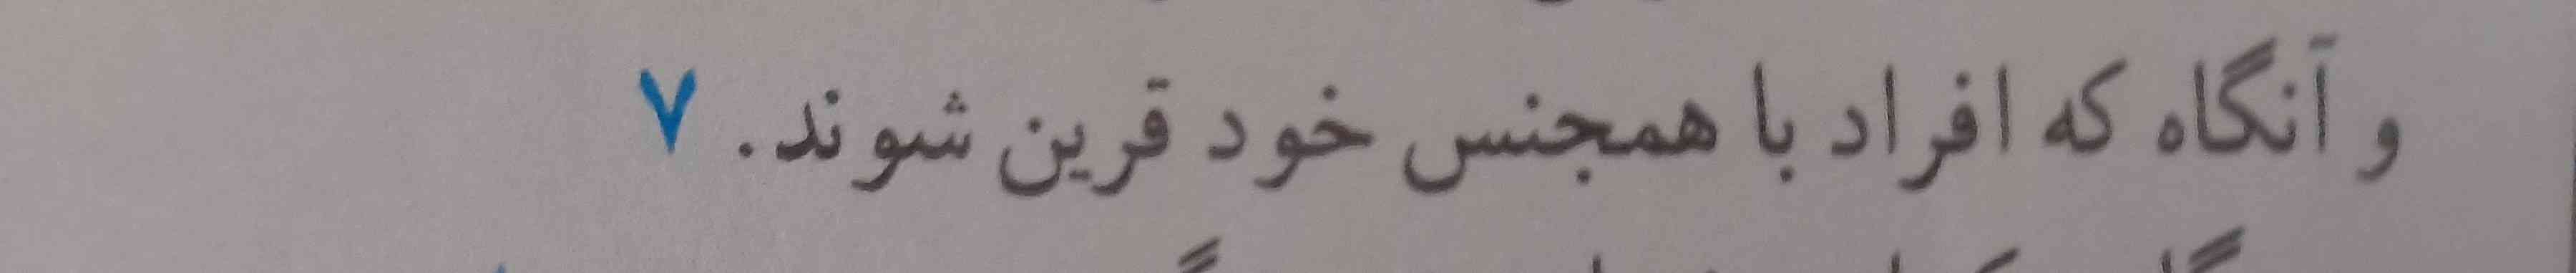 و آنگاه که افراد با همجنس خود قرین شوند. ۷